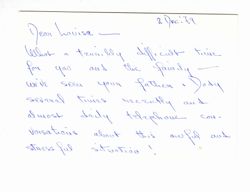 2 Dec. 79
Dear Louisa —
What a terribly difficult time
for you and the family —
we've seen your father + Dody
several times recently and
almost daily telephone con-
versations about this awful and
stressful situation!